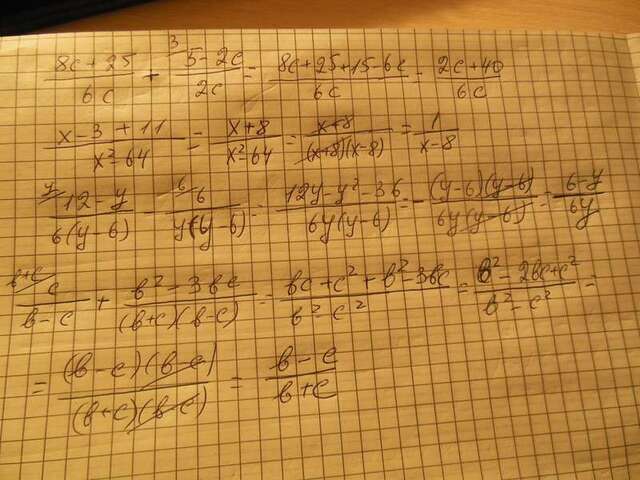 (8c+25)/6c + ³(5-2c)/2c = (8c+25+15-6c)/6c = (2c+40)/6c
(x-3+11)/(x²-64) = (x+8)/(x²-64) = (x+8)/((x+8)(x-8)) = 1/(x-8)
ʸ(12-y)/(6(y-6)) - ⁶6/(y(y-6)) = (12y-y²-36)/(6y(y-6)) = -((y-6)(y-6))/(6y(y-6)) = (6-y)/6y
ᵇ⁺ᶜc/(b-c) + (b²-3bc)/((b+c)(b-c)) = (bc+c²+b²-3bc)/(b²-c²) = (b²-2bc+c²)/(b²-c²) =
= ((b-c)(b-c))/((b+c)(b-c)) = (b-c)/(b+c)